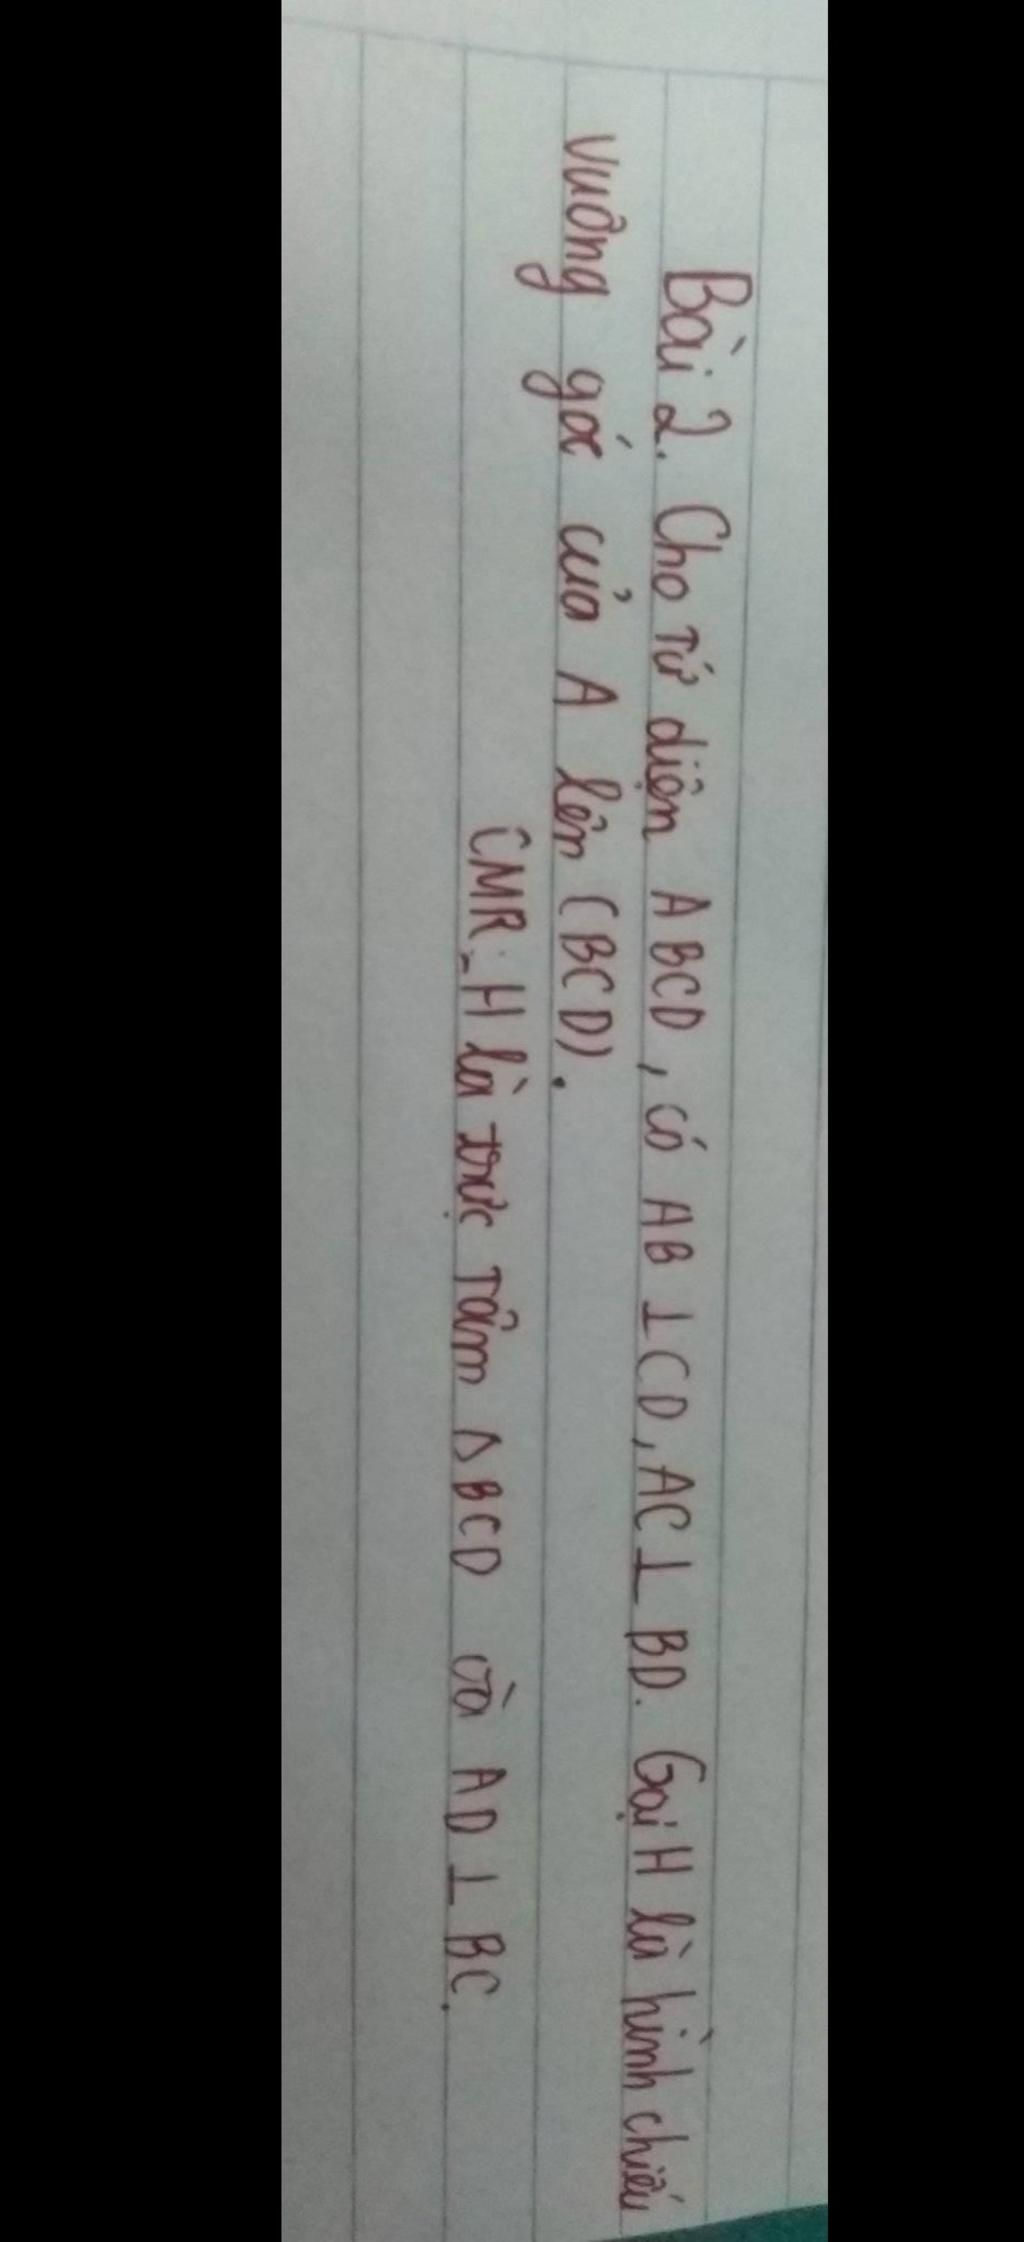 Bài 2. Cho tứ diện ABCD, có AB ⊥ CD, AC ⊥ BD. Gọi H là hình chiếu
vuông góc của A lên (BCD).
CMR: H là trực tâm Δ BCD và AD ⊥ BC.